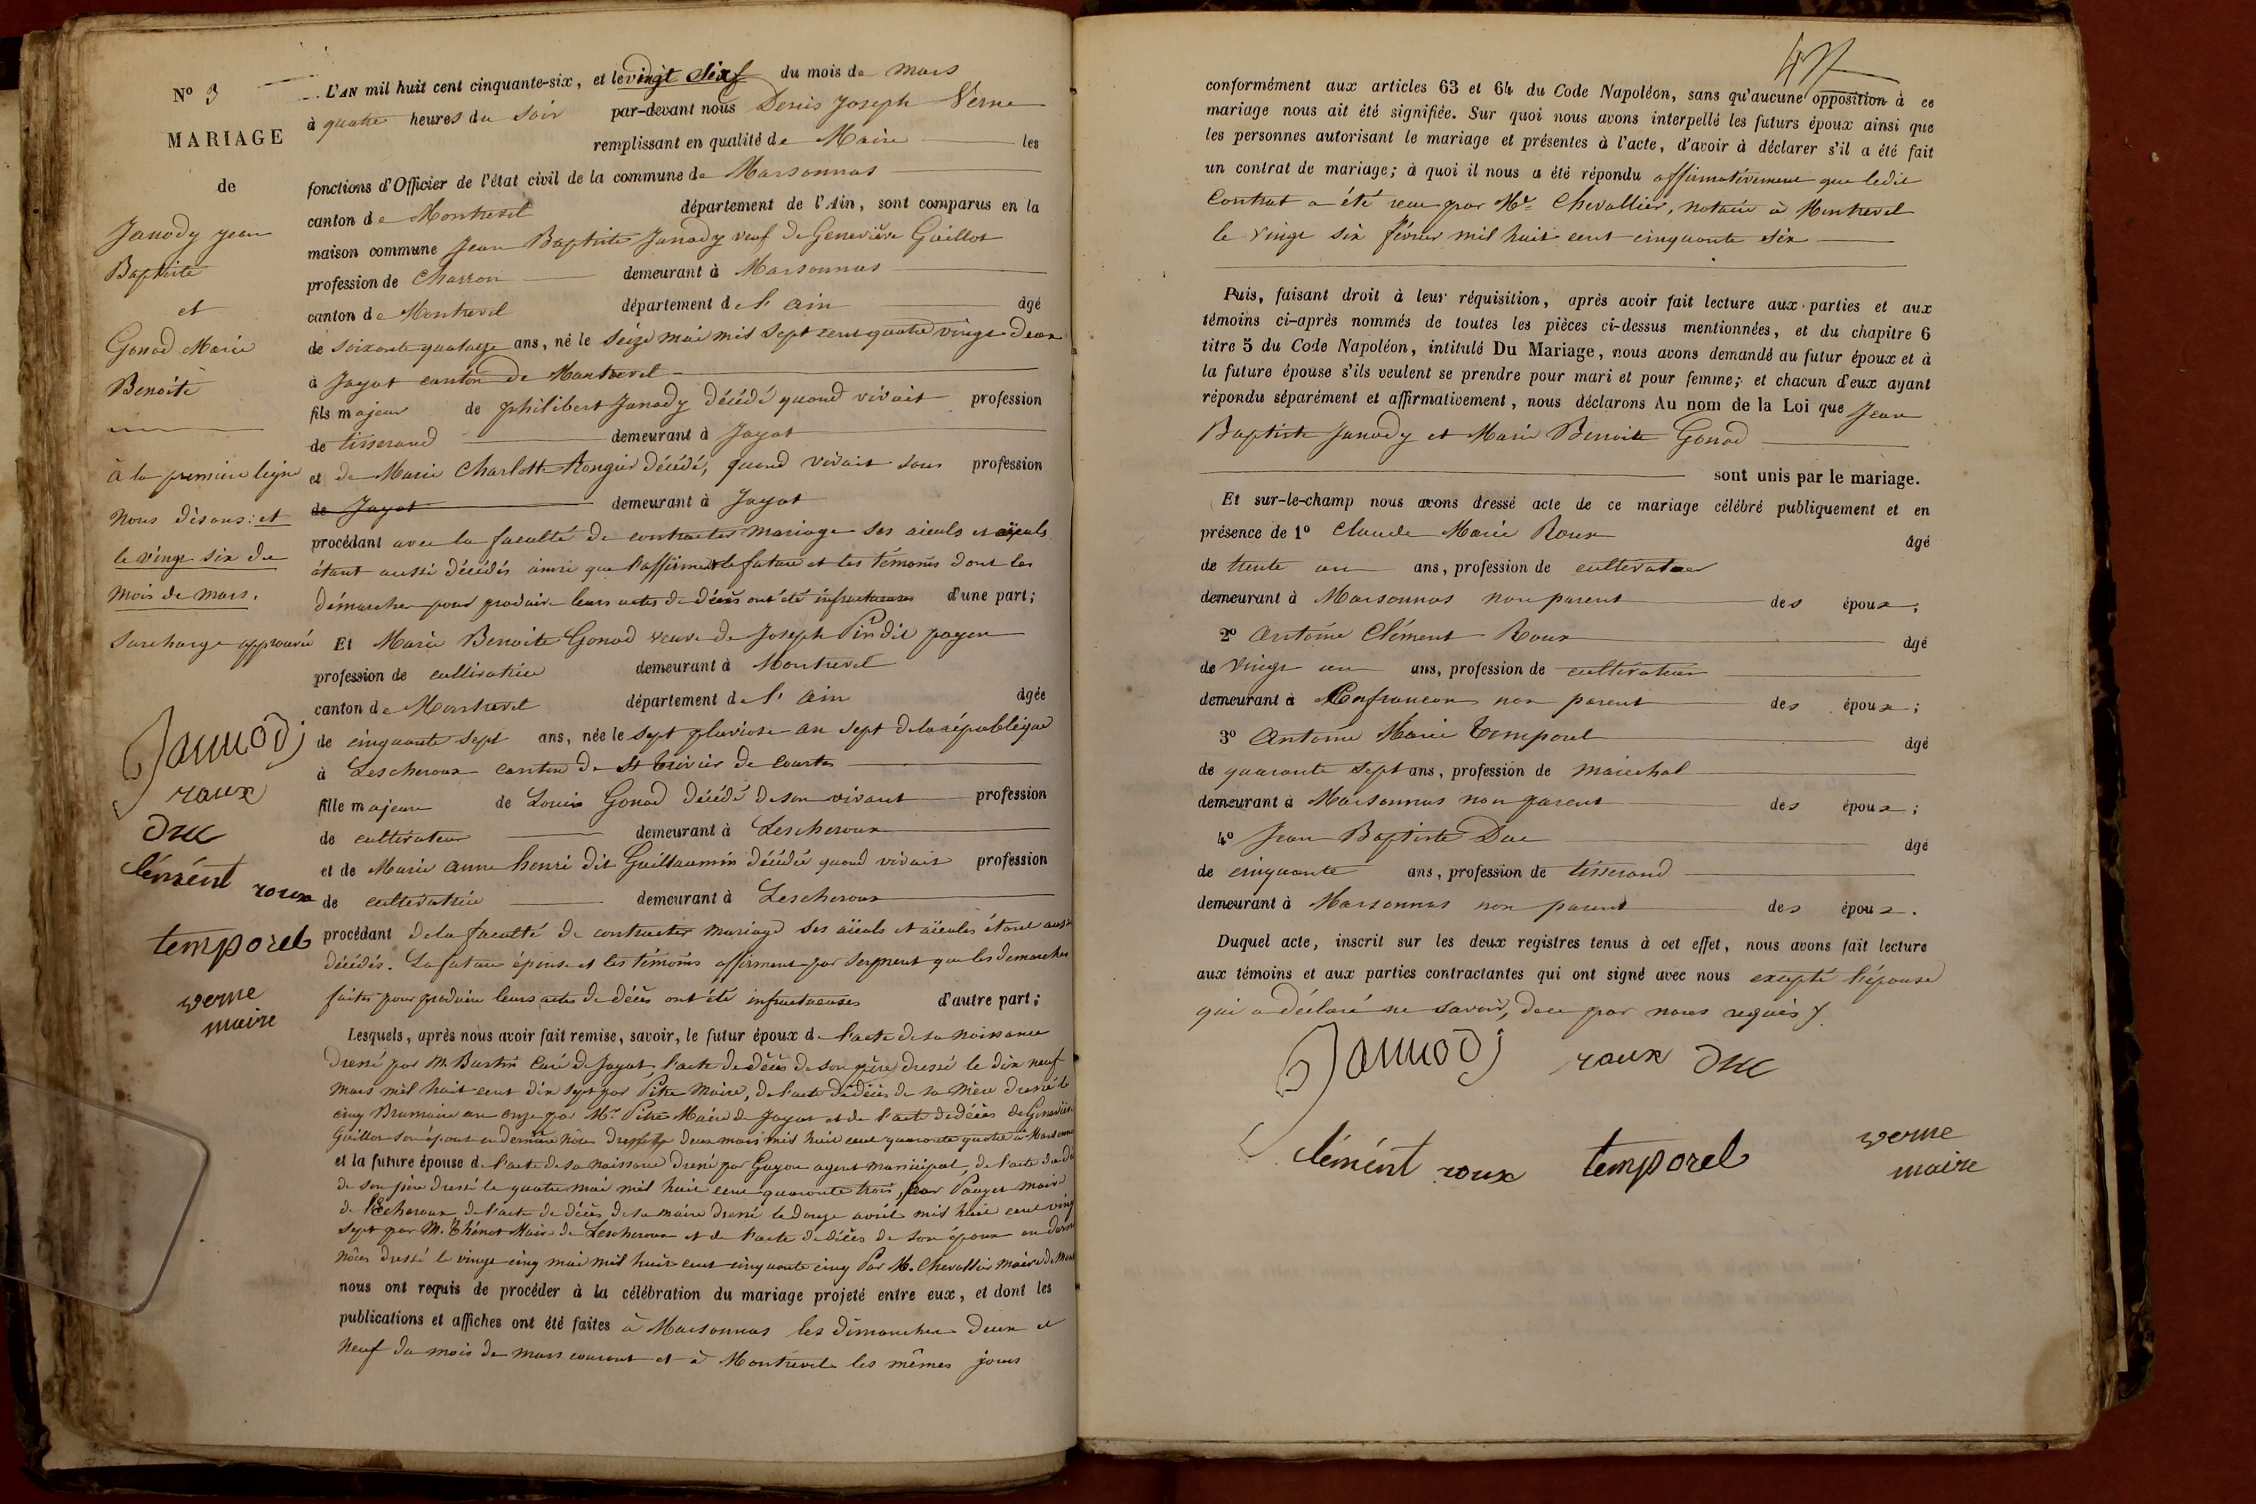 N° 3
MARIAGE
de
Janody jean
Baptiste
et
Gonod Marie
Benoite
à la première ligne
nous disons: et
le vingt six du
mois de mars.
surcharge approuvée
Jannodj
roux
Duc
Clémént roux
temporel
verne
maire
L'AN mil huit cent cinquante-six, et le vingt six du mois de mars
à quatre heures du soir par-devant nous Denis Joseph Verne
remplissant en qualité de Maire les
fonctions d'Officier de l'état civil de la commune de Marsonnas
canton de Montrevel département de l'Ain, sont comparus en la
maison commune Jean Baptiste Janody veuf de Geneviève Guillot
profession de Charron demeurant à Marsonnas
canton de Montrevel département de l' ain âgé
de soixante quatorze ans, né le seize mai mil sept cent quatre vingt deux
à Jayat canton de Montrevel
fils majeur de philibert Janody décédé quand vivait profession
de tisserand demeurant à Jayat
et de Marie Charlotte Rongier décédé, quand vivait sans profession
de Jayat demeurant à Jayat
procédant avec la faculté de contracter mariage ses aieuls et aïeuls
étant aussi décédés ainsi que l'affirment le future et les témoins dont les
démarches pour produire leurs actes de décès ont été infructueuses d'une part;
Et Marie Benoite Gonod veuve de Joseph Pin dit payen
profession de cultivatrice demeurant à Montrevel
canton de Montrevel département de l' ain âgée
de cinquante sept ans, née le sept pluviose an sept de la république
à Lescheroux canton de St trivier de courtes
fille majeure de Louis Gonod décédé de son vivant profession
de cultivateur demeurant à Lescheroux
et de Marie anne henri dit Guillaumin décédée quand vivait profession
de cultivatrice demeurant à Lescheroux
procédant de la faculté de contracter mariage ses aïeuls et aïeules étant aussi
décédés. La future épouse et les témoins affirment par serment que les demarches
faites pour produire leurs actes de décès ont été infructueuses d'autre part;
Lesquels, après nous avoir fait remise, savoir, le futur époux de l'acte de sa naissance
dressé par M. Curé de Jayat, l'acte de décès de son père dressé le dix neuf
mars mil huit cent dix sept par Pitre Maire, de l'acte de décès de sa mère dressé le
cinq Brumaire an onze par Mr Pitre Maire de Jayat et de l'acte de décès de Geneviève
Guillot son épouse en dernière nôces dressé le deux mars mil huit cent quarante quatre à Marsonnas
et la future épouse de l'acte de sa naissance dressé par Guyon agent municipal, de l'acte de décès
de son père dressé le quatre mai mil huit cent quarante trois, par Pauget maire
de Lescheroux de l'acte de décès de sa maire dressé le douze avril mil huit cent vingt
sept par M. Thénot Maire de Lescheroux et de l'acte de décès de son époux en dern
nôces dressé le vingt cinq mai mil huit cent cinquante cinq Par M. Chevallier maire de Mont
nous ont requis de procéder à la célébration du mariage projeté entre eux, et dont les
publications et affiches ont été faites à Marsonnas les dimanches deux et
neuf du mois de mars courant et à Montrevel les mêmes jours
conformément aux articles 63 et 64 du Code Napoléon, sans qu'aucune opposition à ce
mariage nous ait été signifiée. Sur quoi nous avons interpellé les futurs époux ainsi que
les personnes autorisant le mariage et présentes à l'acte, d'avoir à déclarer s'il a été fait
un contrat de mariage; à quoi il nous a été répondu affirmativement que ledit
Contrat a été reçu par Me Chevallier, notaire à Montrevel
le vingt six février mil huit cent cinquante six
Puis, faisant droit à leur réquisition, après avoir fait lecture aux parties et aux
témoins ci-après nommés de toutes les pièces ci-dessus mentionnées, et du chapitre 6
titre 5 du Code Napoléon, intitulé Du Mariage, nous avons demandé au futur époux et à
la future épouse s'ils veulent se prendre pour mari et pour femme; et chacun d'eux ayant
répondu séparément et affirmativement, nous déclarons Au nom de la Loi que Jean
Baptiste Janody et Marie Benoite Gonod
sont unis par le mariage.
Et sur-le-champ nous avons dressé acte de ce mariage célébré publiquement et en
présence de 1° Claude Marie Roux âgé
de trente un ans, profession de cultivateur
demeurant à Marsonnas non parent des époux;
2° Antoine Clément Roux âgé
de vingt un ans, profession de cultivateur
demeurant à Confrancon non parent des époux;
3° Antoine Marie Temporel âgé
de quarante sept ans, profession de maréchal
demeurant à Marsonnas non parent des époux;
4° Jean Baptiste Duc âgé
de cinquante ans, profession de tisserand
demeurant à Marsonnas non parent des époux.
Duquel acte, inscrit sur les deux registres tenus à cet effet, nous avons fait lecture
aux témoins et aux parties contractantes qui ont signé avec nous excepté l'épouse
qui a déclaré ne savoir, de ce par nous requis
Jannodj roux Duc
Clémént roux temporel verne
maire